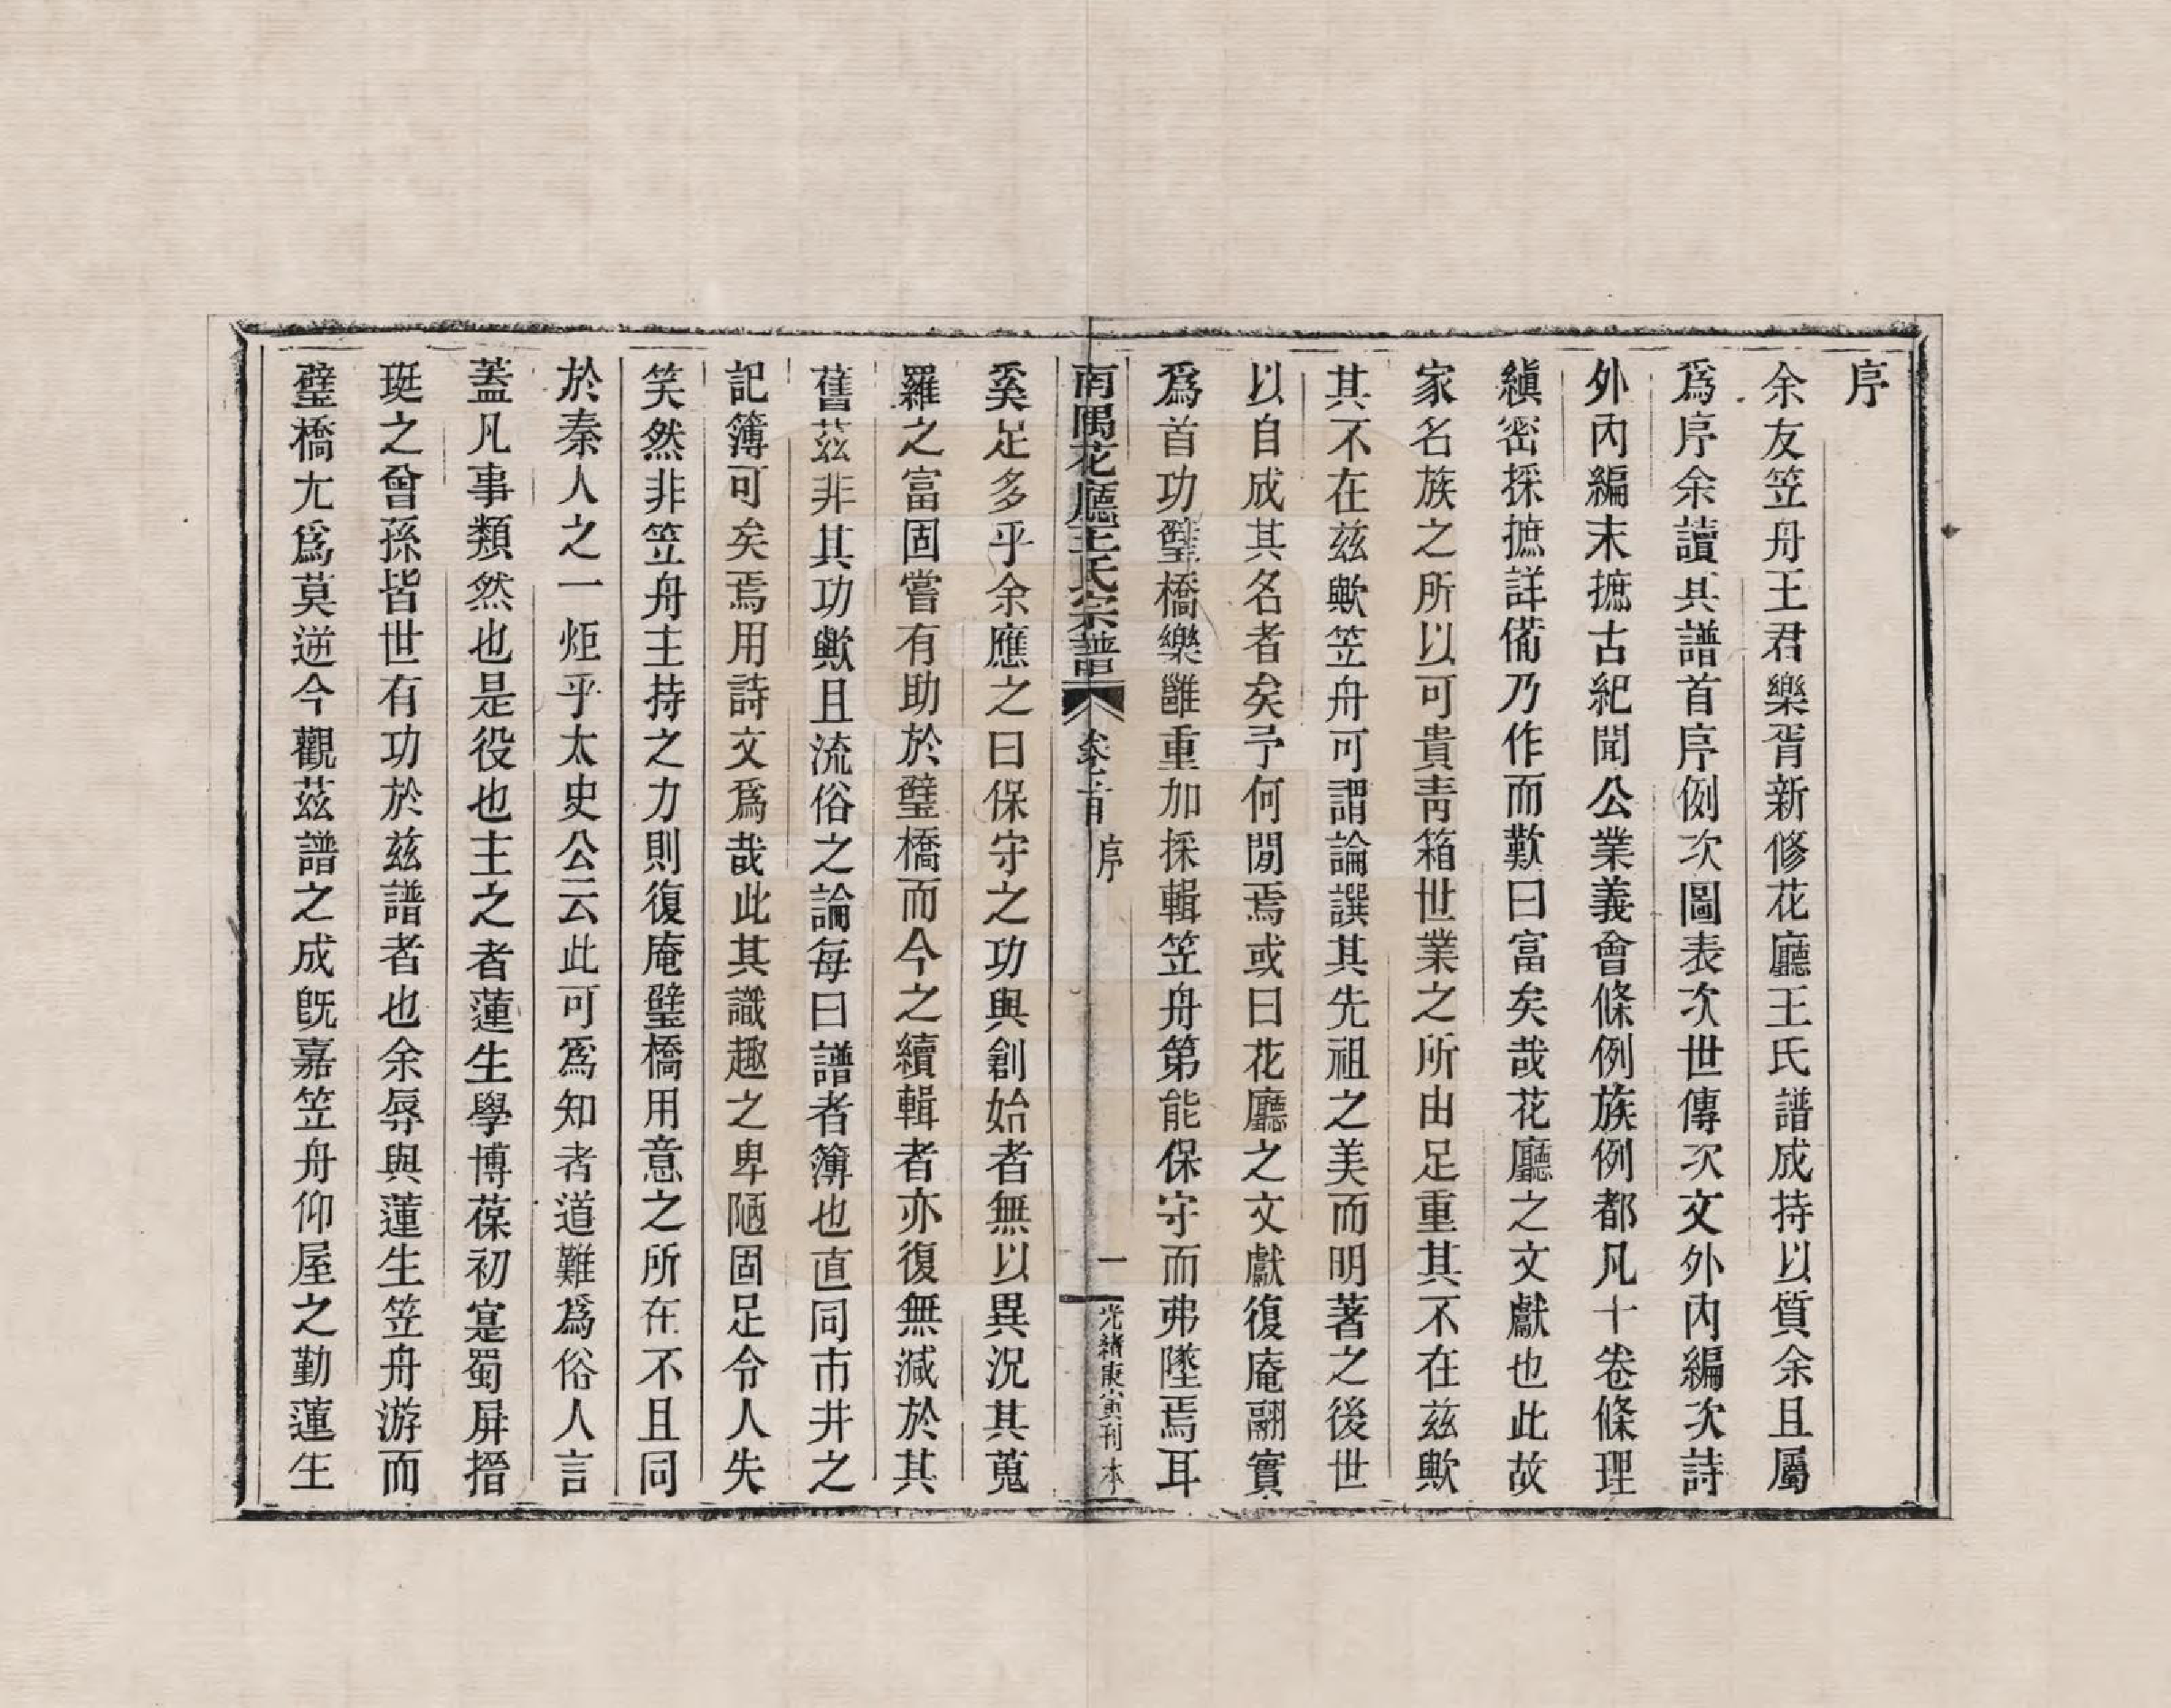 序
余友笠舟王君樂胥新修花廳王氏譜成持以質余且屬
爲序余讀其譜首序例次圖表次世傳次文外內編次詩
外內編末摭古紀聞公業義會條例族例都凡十卷條理
縝密採摭詳備乃作而歎曰富矣哉花廳之文獻也此故
家名族之所以可貴靑箱世業之所由足重其不在茲歟
其不在茲歟笠舟可謂論譔其先祖之美而明著之後世
以自成其名者矣予何閒焉或曰花廳之文獻復庵翮實
爲首功璧橋樂雝重加採輯笠舟第能保守而弗墜焉耳
南隅花廳王氏宗譜 卷之首 序 一 光緖庚寅刊本
奚足多乎余應之曰保守之功與創始者無以異況其蒐
羅之富固嘗有助於璧橋而今之續輯者亦復無減於其
舊茲非其功歟且流俗之論每曰譜者簿也直同市井之
記簿可矣焉用詩文爲哉此其識趣之卑陋固足令人失
笑然非笠舟主持之力則復庵璧橋用意之所在不且同
於秦人之一炬乎太史公云此可爲知者道難爲俗人言
蓋凡事類然也是役也主之者蓮生學博葆初寔蜀屏搢
珽之曾孫皆世有功於茲譜者也余辱與蓮生笠舟游而
璧橋尢爲莫逆今觀茲譜之成旣嘉笠舟仰屋之勤蓮生